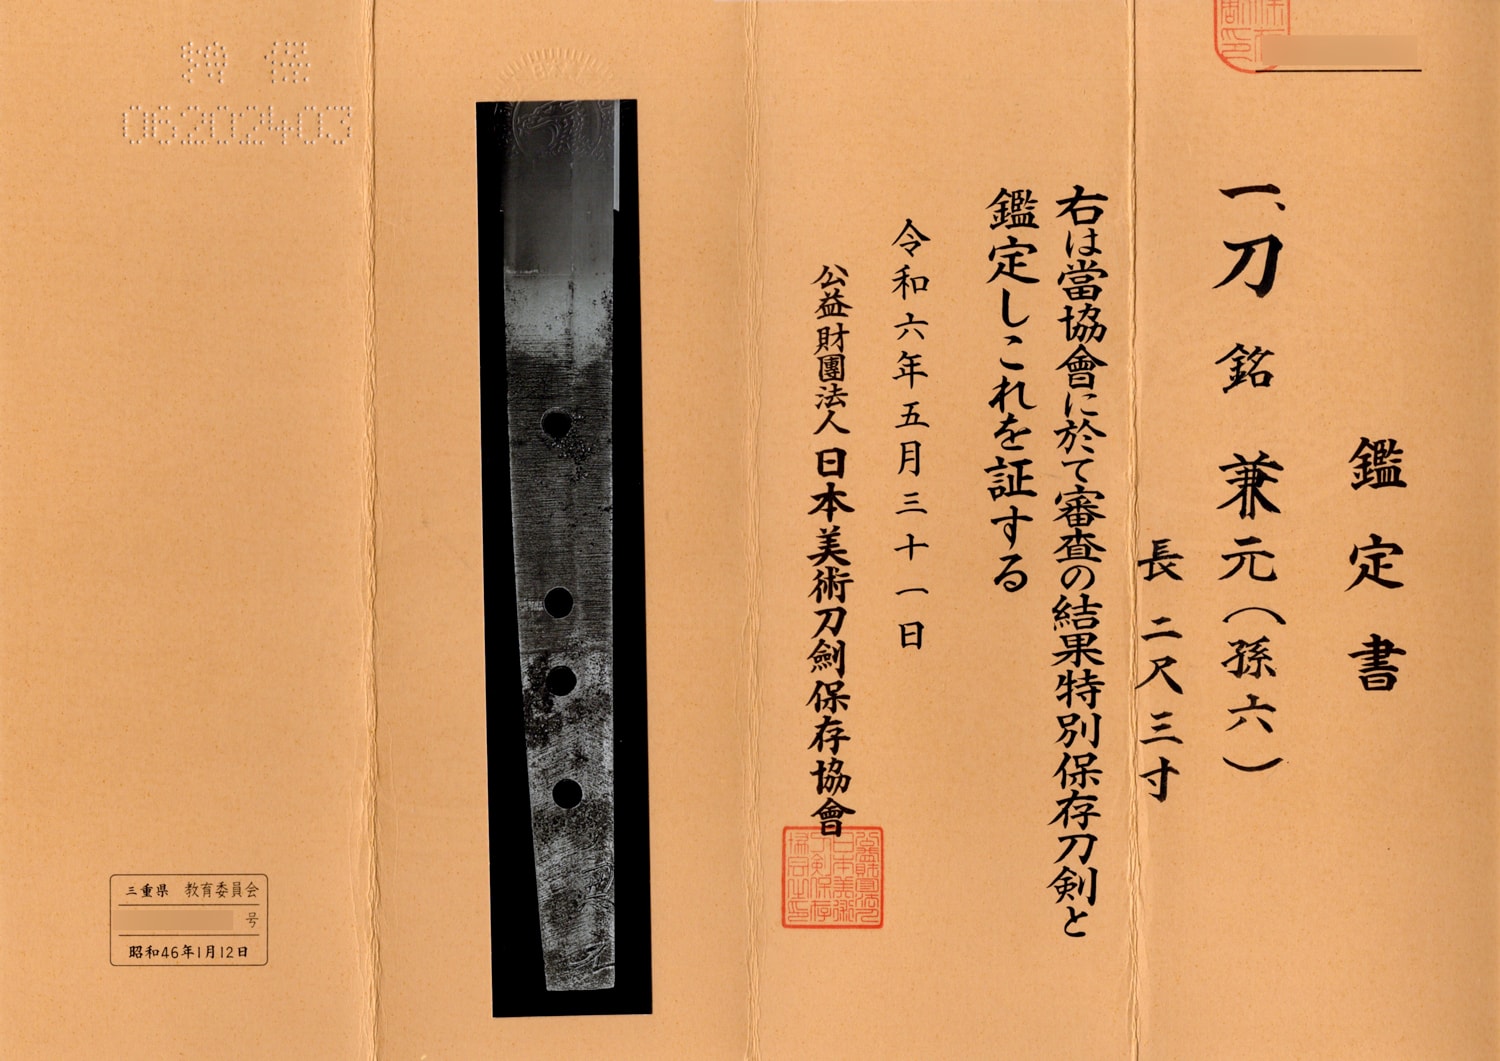 鑑定書
一、刀 銘 兼元(孫六)
長 二尺三寸
右は當協會に於て審査の結果特別保存刀剣と
鑑定しこれを証する
令和六年五月三十一日
公益財團法人 日本美術刀劍保存協會
特保
06202403
三重県 教育委員会
号
昭和46年1月12日